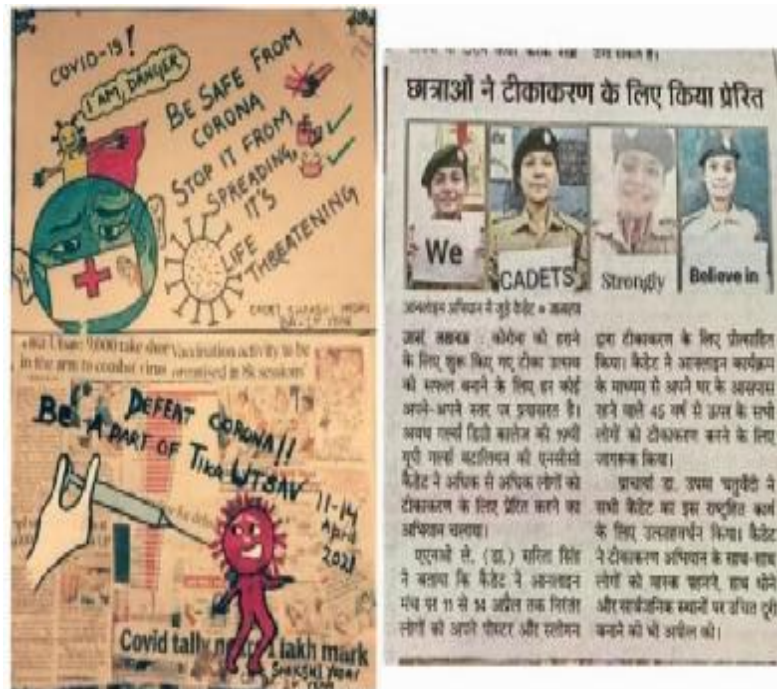 COVID-19!
I AM DANGER
BE SAFE FROM
CORONA
STOP IT FROM
SPREADING,
IT'S
LIFE
THREATENING
DEFEAT CORONA!!
BE A PART OF TIKA UTSAV
11-14
April
2021
Covid tally
lakh mark
छात्राओं ने टीकाकरण के लिए किया प्रेरित
We
CADETS
Strongly
Believe in
आनलाइन अभियान में जुड़े कैडेट • जागरण
जासं, लखनऊ : कोरोना को हराने
के लिए शुरू किए गए टीका उत्सव
को सफल बनाने के लिए हर कोई
अपने-अपने स्तर पर प्रयासरत है।
अवध गर्ल्स डिग्री कालेज की 19वीं
यूपी गर्ल्स बटालियन की एनसीसी
कैडेट ने अधिक से अधिक लोगों को
टीकाकरण के लिए प्रेरित करने का
अभियान चलाया।
एएनओ ले. (डा.) सरिता सिंह
ने बताया कि कैडेट ने आनलाइन
मंच पर 11 से 14 अप्रैल तक निरंतर
लोगों को अपने पोस्टर और स्लोगन
द्वारा टीकाकरण के लिए प्रोत्साहित
किया। कैडेट ने आनलाइन कार्यक्रम
के माध्यम से अपने घर के आसपास
रहने वाले 45 वर्ष से ऊपर के सभी
लोगों को टीकाकरण करने के लिए
जागरूक किया।
प्राचार्या डा. उपमा चतुर्वेदी ने
सभी कैडेट का इस राष्ट्रहित कार्य
के लिए उत्साहवर्धन किया। कैडेट
ने टीकाकरण अभियान के साथ-साथ
लोगों को मास्क पहनने, हाथ धोने
और सार्वजनिक स्थानों पर उचित दूरी
बनाने की भी अपील की।